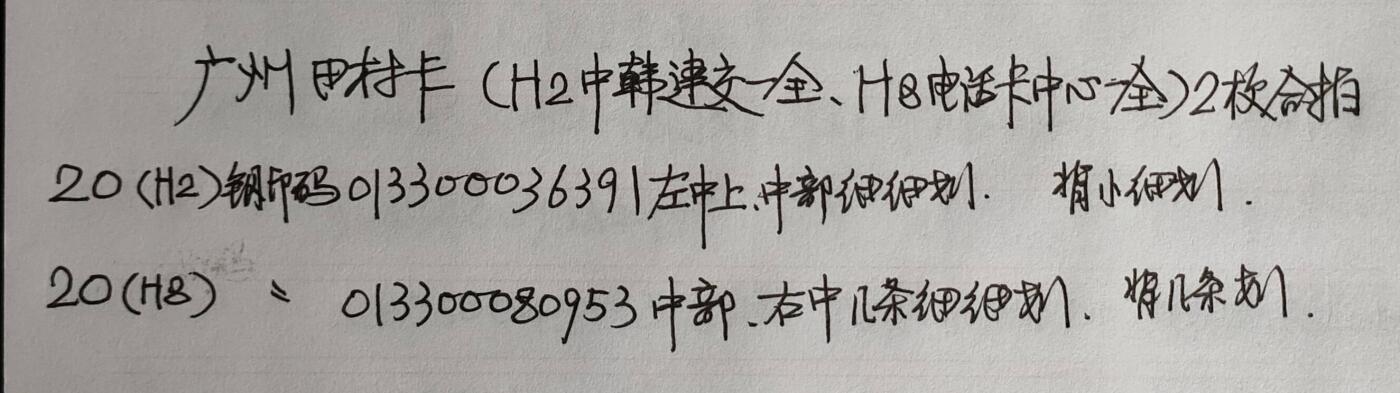 广州田村卡（H2中韩建交一全、H8电话卡中心一全）2枚合拍
20（H2）钢印码013300036391左中上、中部细细划. 背小细划.
20（H8） 〃 013300080953中部、右中几条细细划. 背几条划.